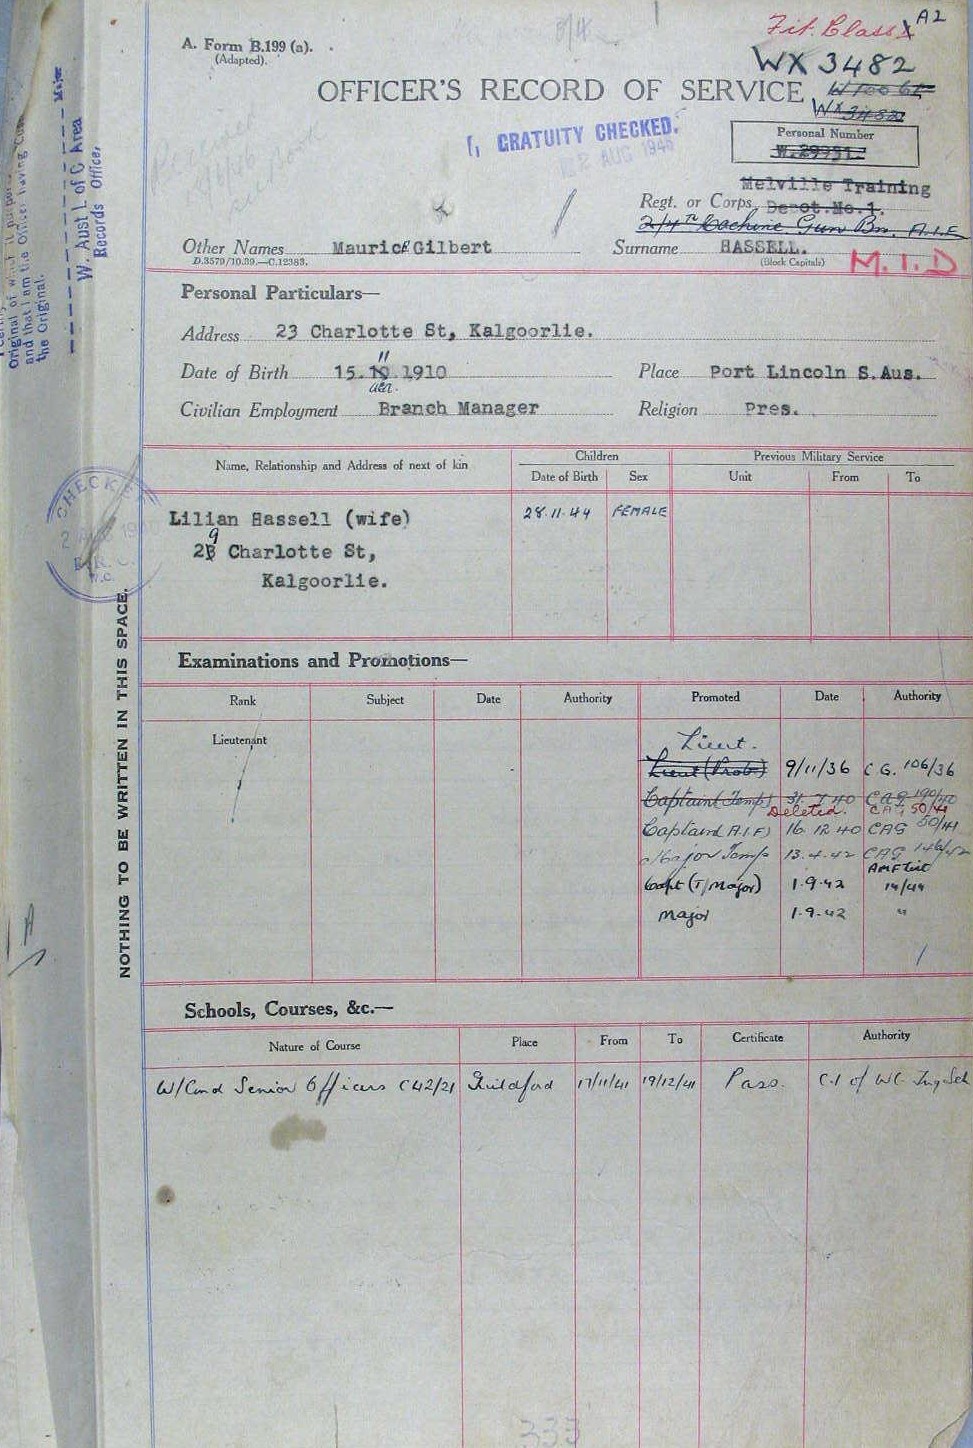 A2
Fit. Class 1
A. Form B.199 (a).
(Adapted).
WX 3482
OFFICER'S RECORD OF SERVICE
WX 3482
GRATUITY CHECKED.
2 AUG 1946
Personal Number
W.29931.
Melville Training
Regt. or Corps Depot.No.1.
2/4th Machine Gun Bn. A.I.F.
Other Names Maurice Gilbert Surname HASSELL.
D.3579/10.39.—C.12383. (Block Capitals)
M.I.D
Personal Particulars—
Address 23 Charlotte St, Kalgoorlie.
11
Date of Birth 15.10.1910 Place Port Lincoln S.Aus.
Civilian Employment Branch Manager Religion Pres.
Name, Relationship and Address of next of kin Children Previous Military Service
Date of Birth Sex Unit From To
Lilian Hassell (wife) 28.11.44 FEMALE
9
23 Charlotte St,
Kalgoorlie.
Examinations and Promotions—
Rank Subject Date Authority Promoted Date Authority
Lieutenant Lieut.
Lieut (Prob) 9/11/36 C G. 106/36
Captain (Temp) 31 7 40 CAG 190/40
Deleted. CAG 50/41
Captain (A.I.F) 16 12 40 CAG 50/41
Major Temp 13.4.42 CAG 146/42
AMF List
Capt (T/Major) 1.9.42 14/44
Major 1.9.42 "
Schools, Courses, &c.—
Nature of Course Place From To Certificate Authority
W/Cmd Senior Officers C42/21 Guildford 17/11/41 19/12/41 Pass. C.I of WC. Trg Sch
NOTHING TO BE WRITTEN IN THIS SPACE.
and that I am the Officer having
the Original.
Major
W. Aust L. of C. Area
Records Office,
CHECKED
333